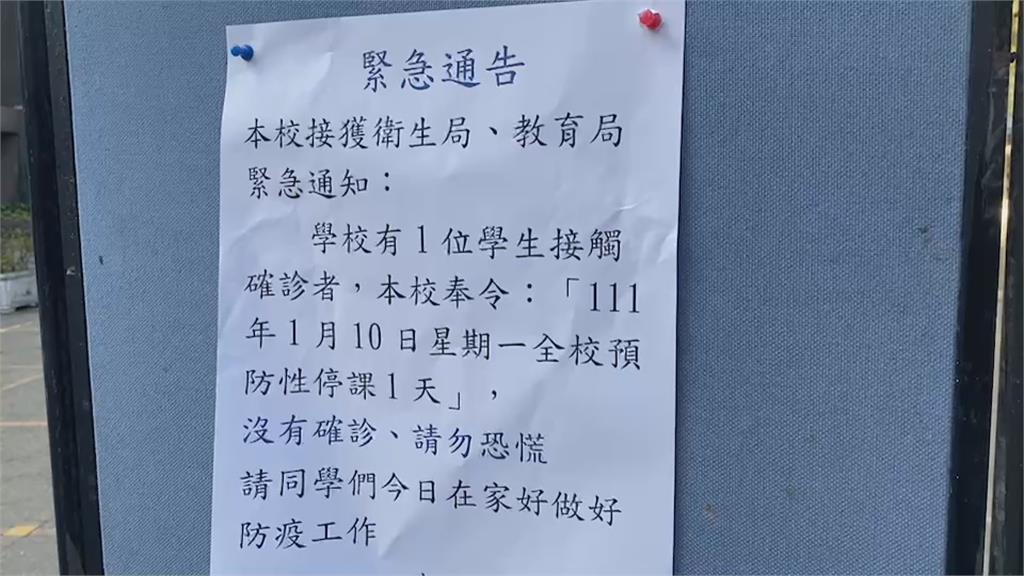 緊急通告
本校接獲衛生局、教育局
緊急通知：
學校有1位學生接觸
確診者，本校奉令：「111
年1月10日星期一全校預
防性停課1天」，
沒有確診、請勿恐慌
請同學們今日在家好做好
防疫工作